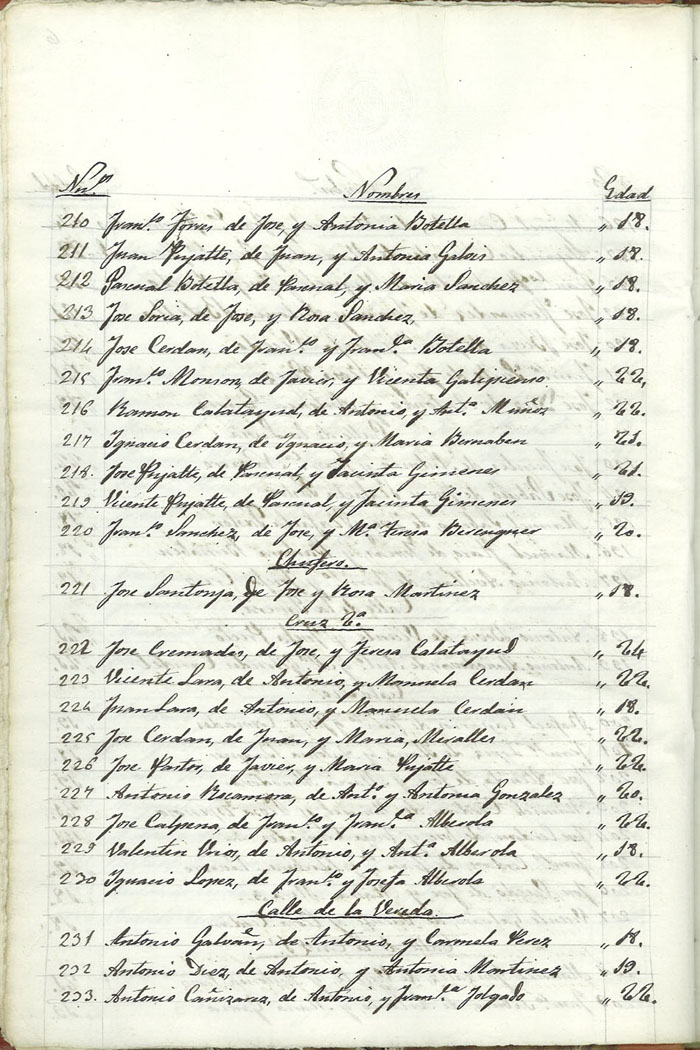 Num.os Nombres Edad
210 Fran.co Torres de Jose, y Antonia Botella „ 18.
211 Juan Pujalte, de Juan, y Antonia Galvis „ 18.
212 Pascual Botella, de Pascual, y Maria Sanchez „ 18.
213 Jose Soria, de Jose, y Rosa Sanchez, „ 18.
214 Jose Cerdan, de Fran.co y Fran.ca Botella „ 18.
215 Fran.co Monzon, de Javier, y Vicenta „ 22,
216 Ramon Calatayud, de Antonio, y Ant.a Muñoz „ 22.
217 Ignacio Cerdan, de Ignacio, y Maria Bernabeu „ 21.
218. Jose Pujalte, de Pascual, y Jacinta Gimenes „ 21.
219 Vicente Pujalte, de Pascual, y Jacinta Gimenes „ 19.
220 Fran.co Sanchez, de Jose, y M.a Teresa Berenguer „ 20.
Chufero.
221 Jose Santonja, de Jose y Rosa Martinez „ 18.
Cruz 2.a
222 Jose Cremades, de Jose, y Teresa Calatayud „ 24
223 Vicente Lara, de Antonio, y Manuela Cerdan „ 22.
224 Juan Lara, de Antonio, y Manuela Cerdán „ 18.
225 Jose Cerdan, de Juan, y Maria, Miralles „ 22.
226 Jose Pastor, de Javier, y Maria Pujalte „ 22.
227 Antonio Rocamora, de Ant.o y Antonia Gonzalez „ 20.
228 Jose Calpena, de Fran.co y Fran.ca Alberola „ 22.
229 Valentin Vrios, de Antonio, y Ant.a Alberola „ 18.
230 Ignacio Lopez, de Fran.co y Josefa Alberola „ 22.
Calle de la Vereda.
231 Antonio Galvañ, de Antonio, y Carmela Perez „ 18.
232 Antonio Diez, de Antonio, y Antonia Martinez „ 19.
233. Antonio Cañizares, de Antonio, y Fran.ca Jolgado „ 22.